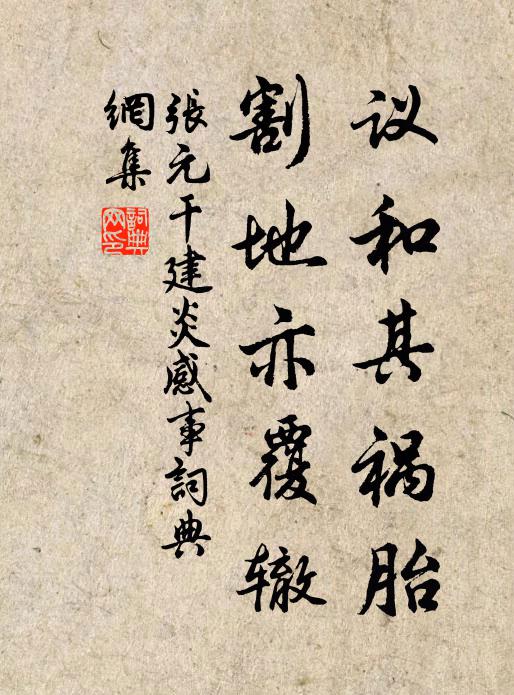 议和其祸胎
割地亦覆辙
張元干建炎感事詞典
網集
詞典
网印